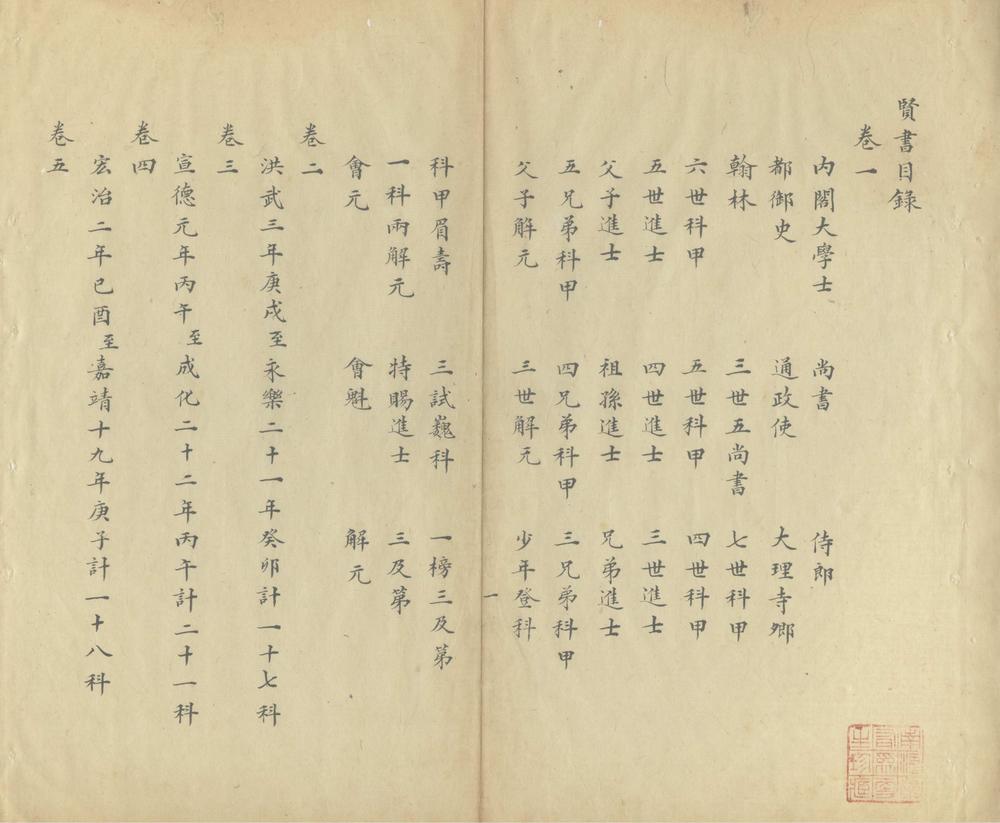 賢書目錄
卷一
內閣大學士 尚書 侍郎
都御史 通政使 大理寺卿
翰林 三世五尚書 七世科甲
六世科甲 五世科甲 四世科甲
五世進士 四世進士 三世進士
父子進士 祖孫進士 兄弟進士
五兄弟科甲 四兄弟科甲 三兄弟科甲
父子解元 三世解元 少年登科
一
科甲眉壽 三試巍科 一榜三及第
一科兩解元 特賜進士 三及第
會元 會魁 解元
卷二
洪武三年庚戌至永樂二十一年癸卯計一十七科
卷三
宣德元年丙午至成化二十二年丙午計二十一科
卷四
宏治二年已酉至嘉靖十九年庚子計一十八科
卷五